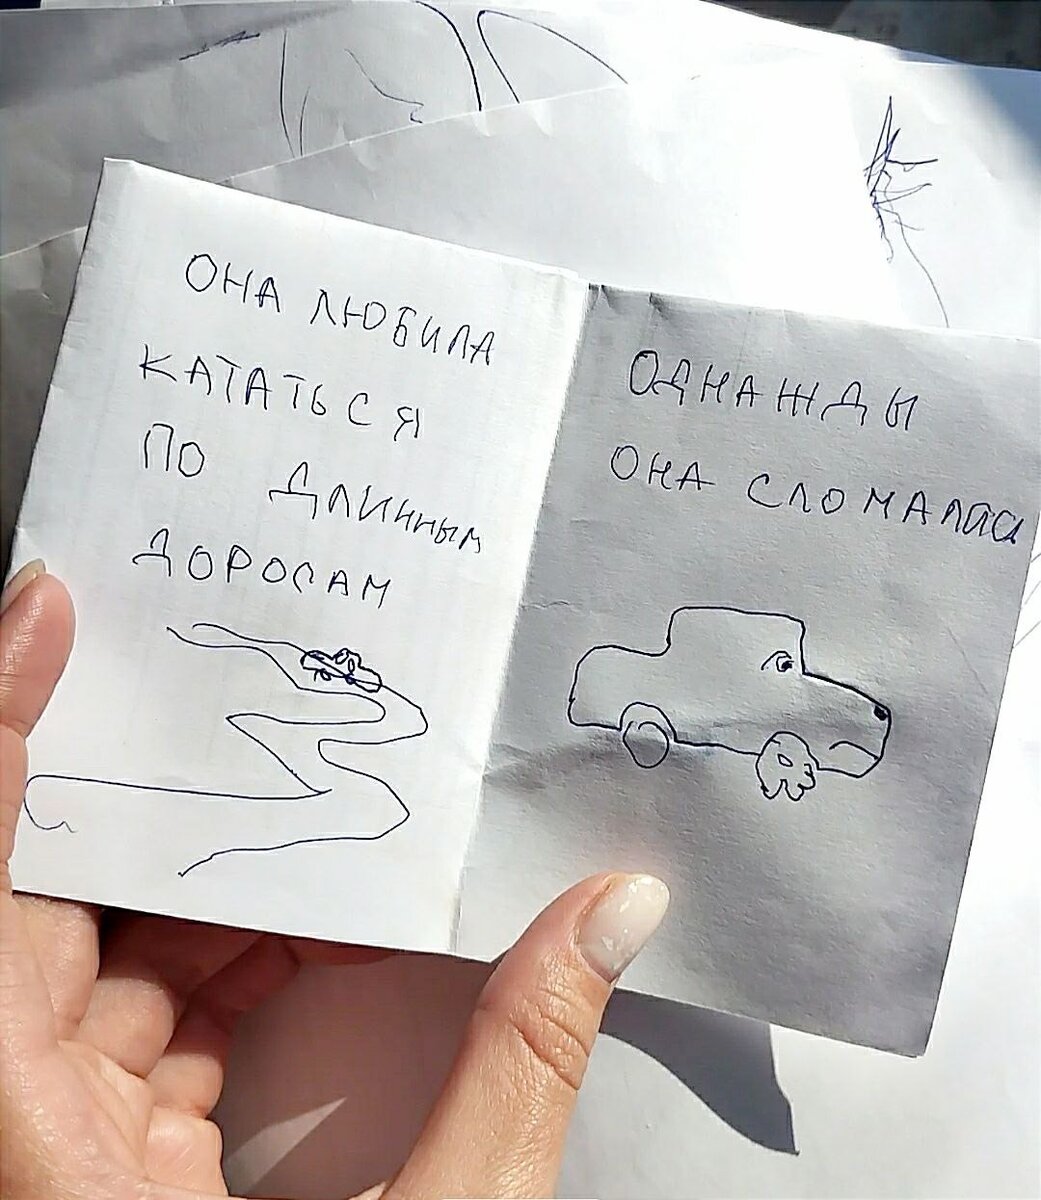 ОНА ЛЮБИЛА
КАТАТЬСЯ
ПО ДЛИННЫМ
ДОРОГАМ
ОДНАЖДЫ
ОНА СЛОМАЛАСЬ